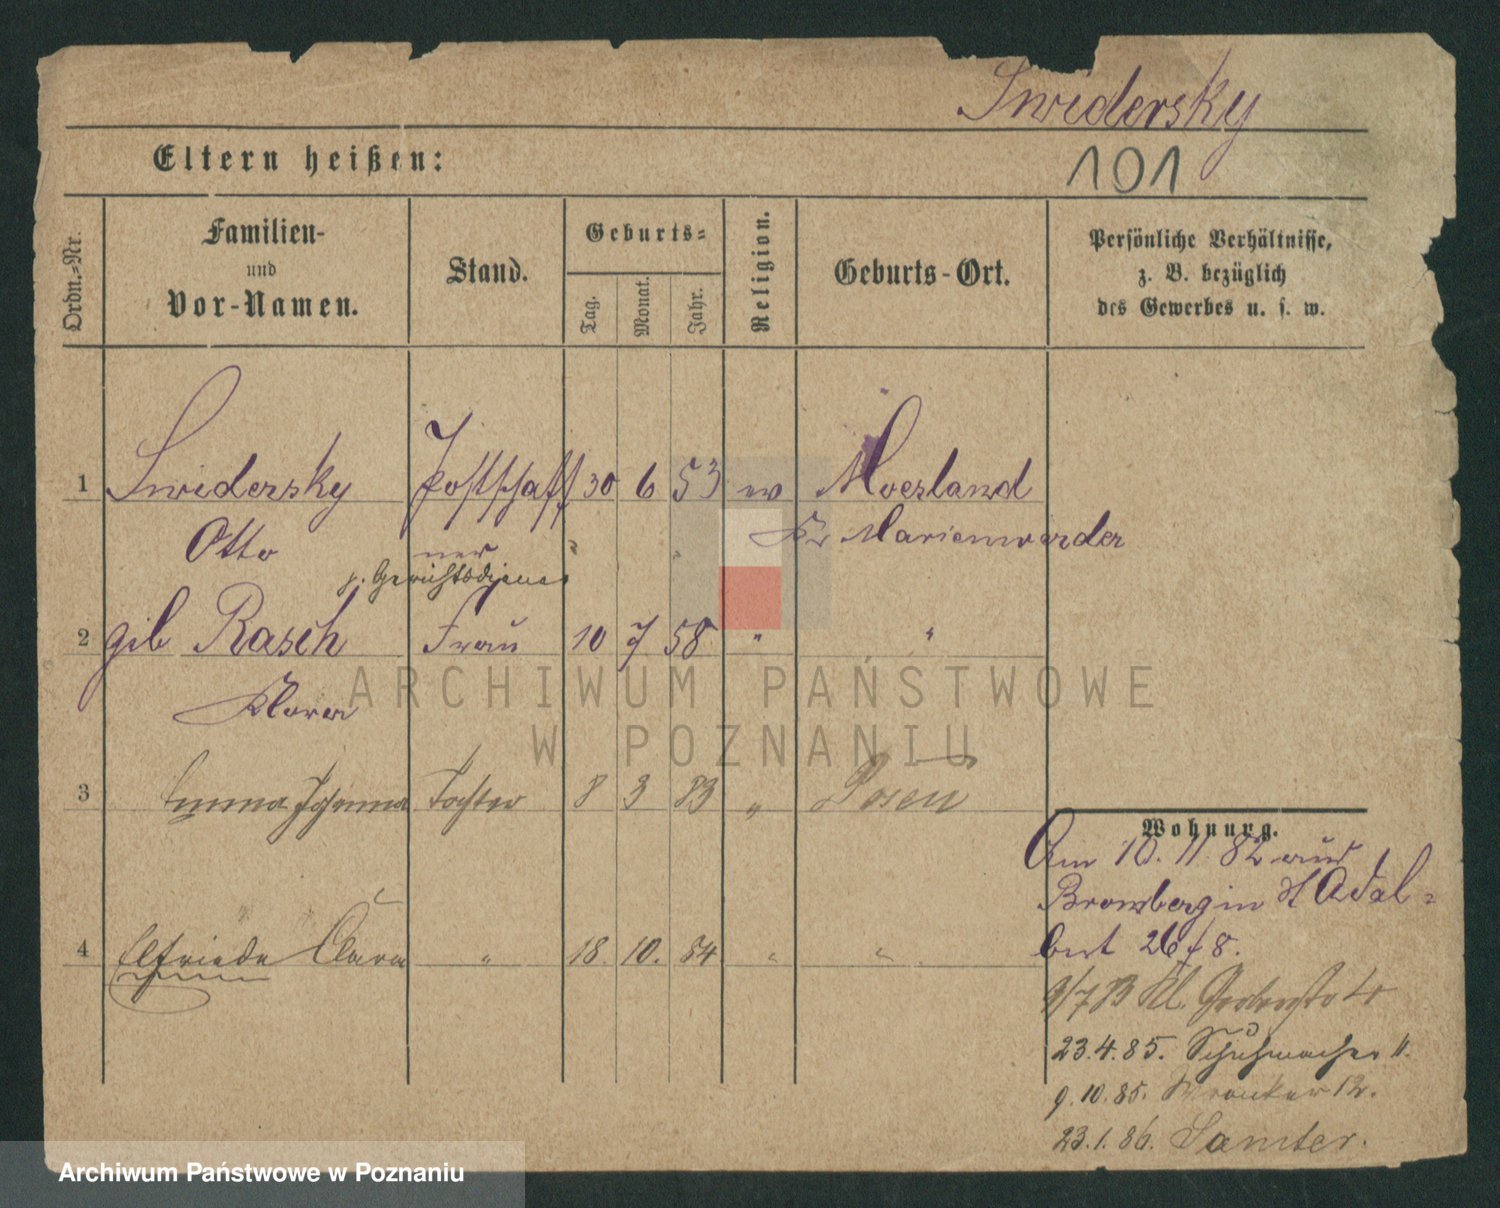 Swidersky
Eltern heißen:
101
Ordn.-Nr.
Familien-
und
Vor-Namen.
Stand.
Geburts-
Tag.
Monat.
Jahr.
Religion.
Geburts-Ort.
Persönliche Verhältnisse,
z. B. bezüglich
des Gewerbes u. s. w.
1 Swidersky Postschaff 30 6 53 ev Moesland
Otto ner Kr Marienwerder
j. Gerichtsdiener
2 geb Rasch Frau 10 7 58 " "
Klara
3 Emma Johanna Tochter 8 3 83 " Posen
4 Elfriede Clara " 18. 10. 84 " "
Wohnung.
Am 10. 11 82 aus
Bromberg in St Adal-
bert 26/8.
9/7 83 Kl. Gerberstr
23.4.85. Schuhmacher 11.
9.10.85. Wronker 12.
23.1.86. Samter.
ARCHIWUM PAŃSTWOWE
W POZNANIU
Archiwum Państwowe w Poznaniu